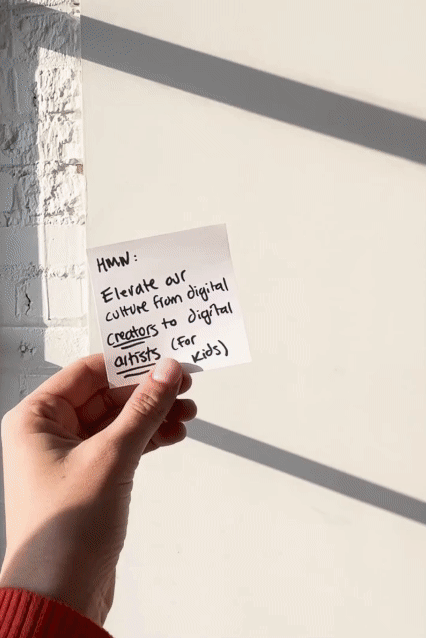 HMW:
Elevate our
culture from digital
creators to digital
artists (for
kids)